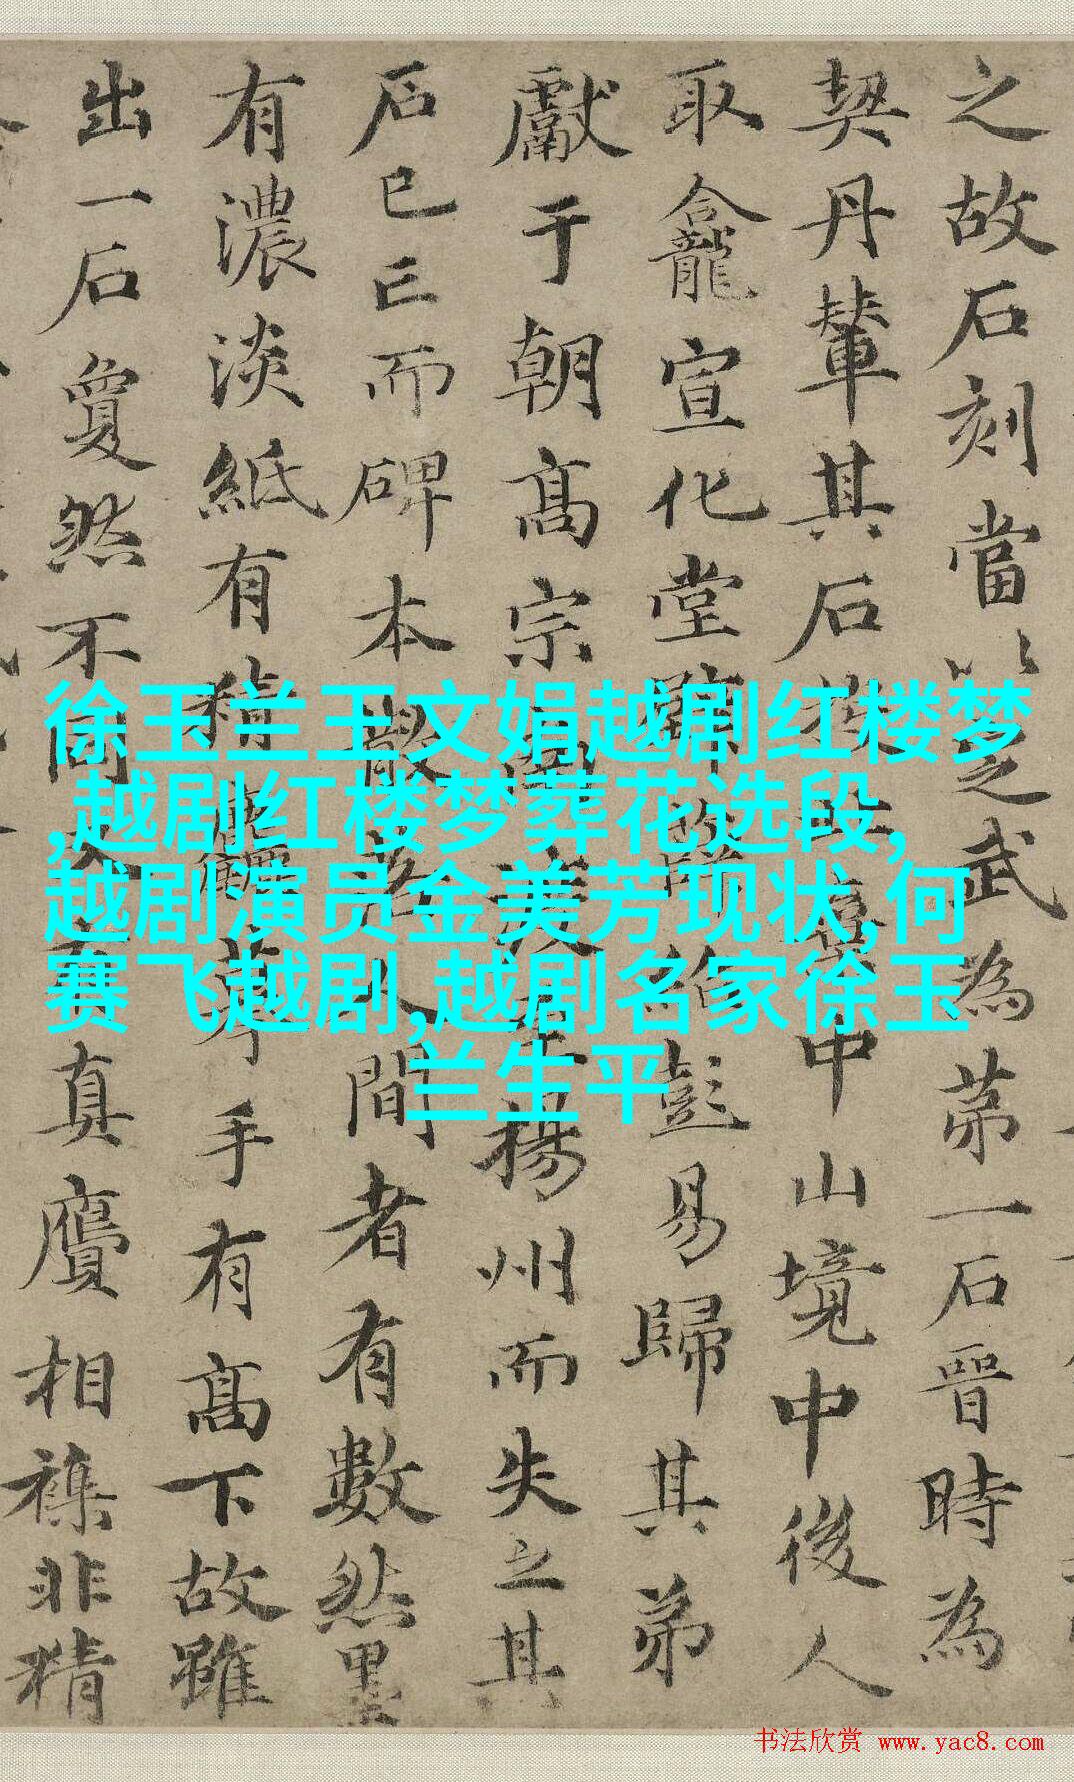 徐玉兰王文娟越剧红楼梦
,越剧红楼梦葬花选段,
越剧演员金美芳现状,何
赛飞越剧,越剧名家徐玉
兰生平
之故石刻當以之武為苐一石晉時為
契丹輦其石投中山境中後人
取龕宣化堂彭易歸其弟
獻于朝高宗揚州而失之其
石已亡而碑本散落人間者有數然墨
有濃淡紙有精麤摹手有高下故雖
出一石敻然不同又真贋相襍非精
书法欣赏 www.yac8.com